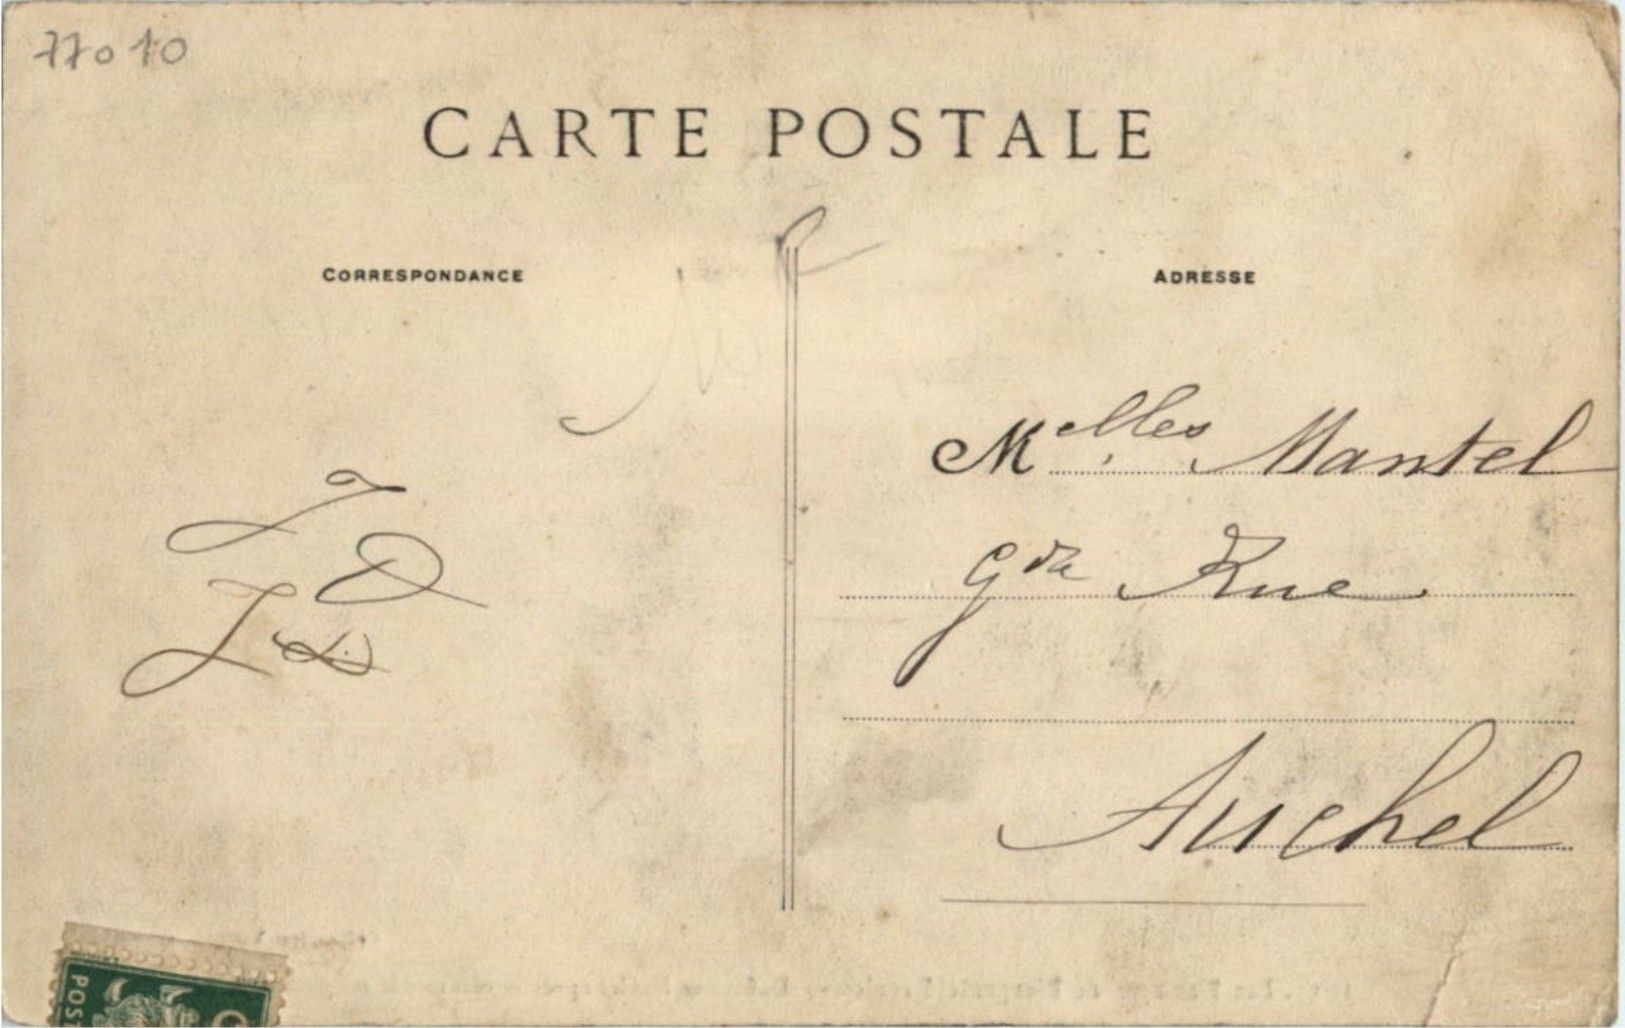 77010
CARTE POSTALE
CORRESPONDANCE
ADRESSE
Melles Mantel
Gde Rue
Auchel
POS